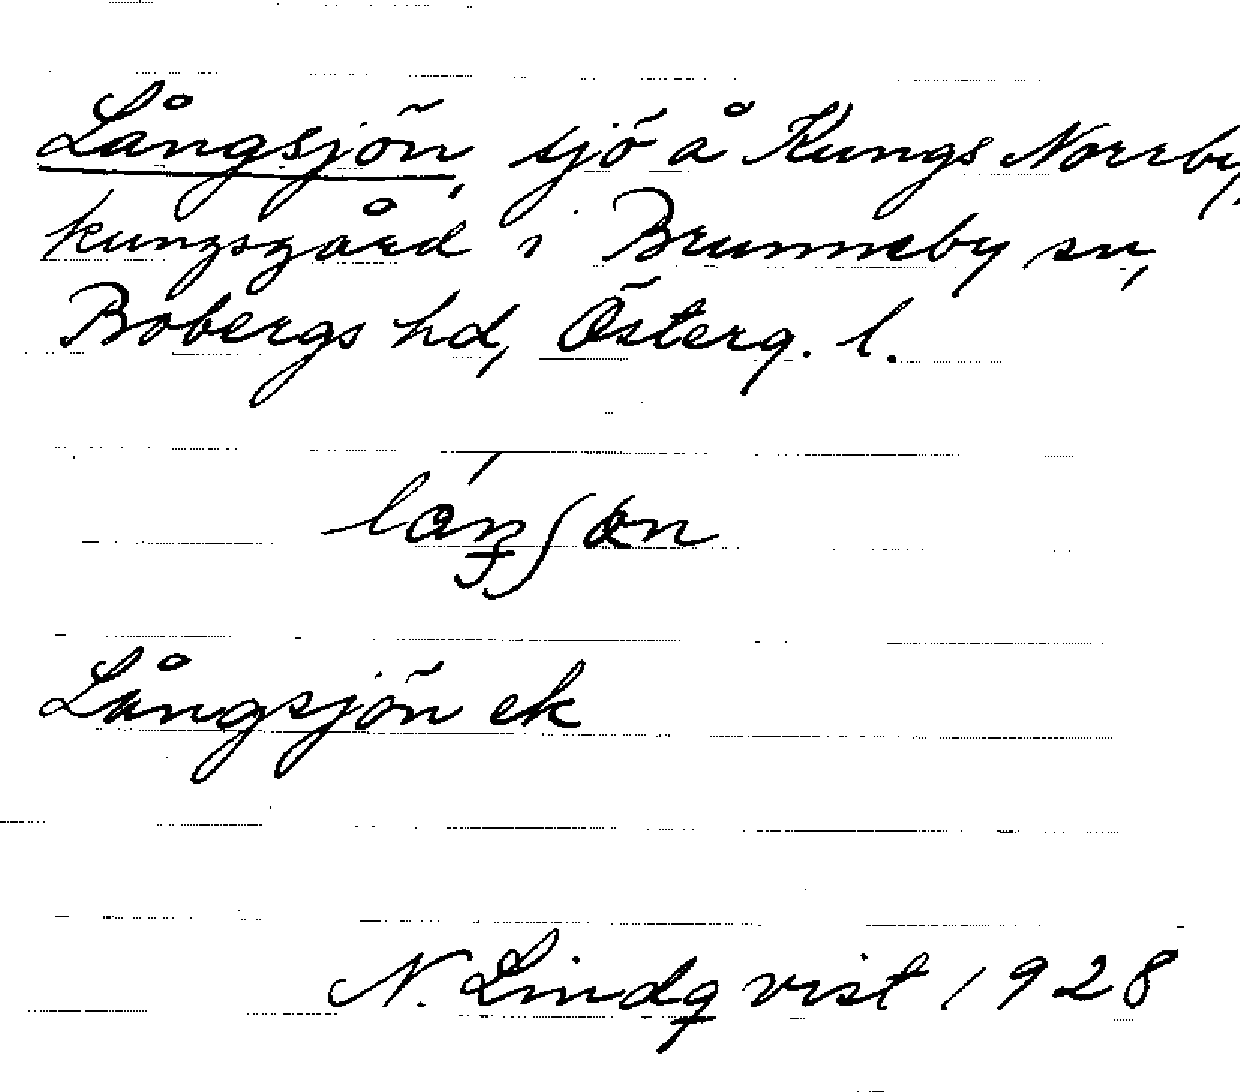 Långsjön, sjö å Kungs Norrby,
kungsgård i Brunneby sn,
Bobergs hd, Österg. l.
Långsjön ek
N. Lindqvist 1928